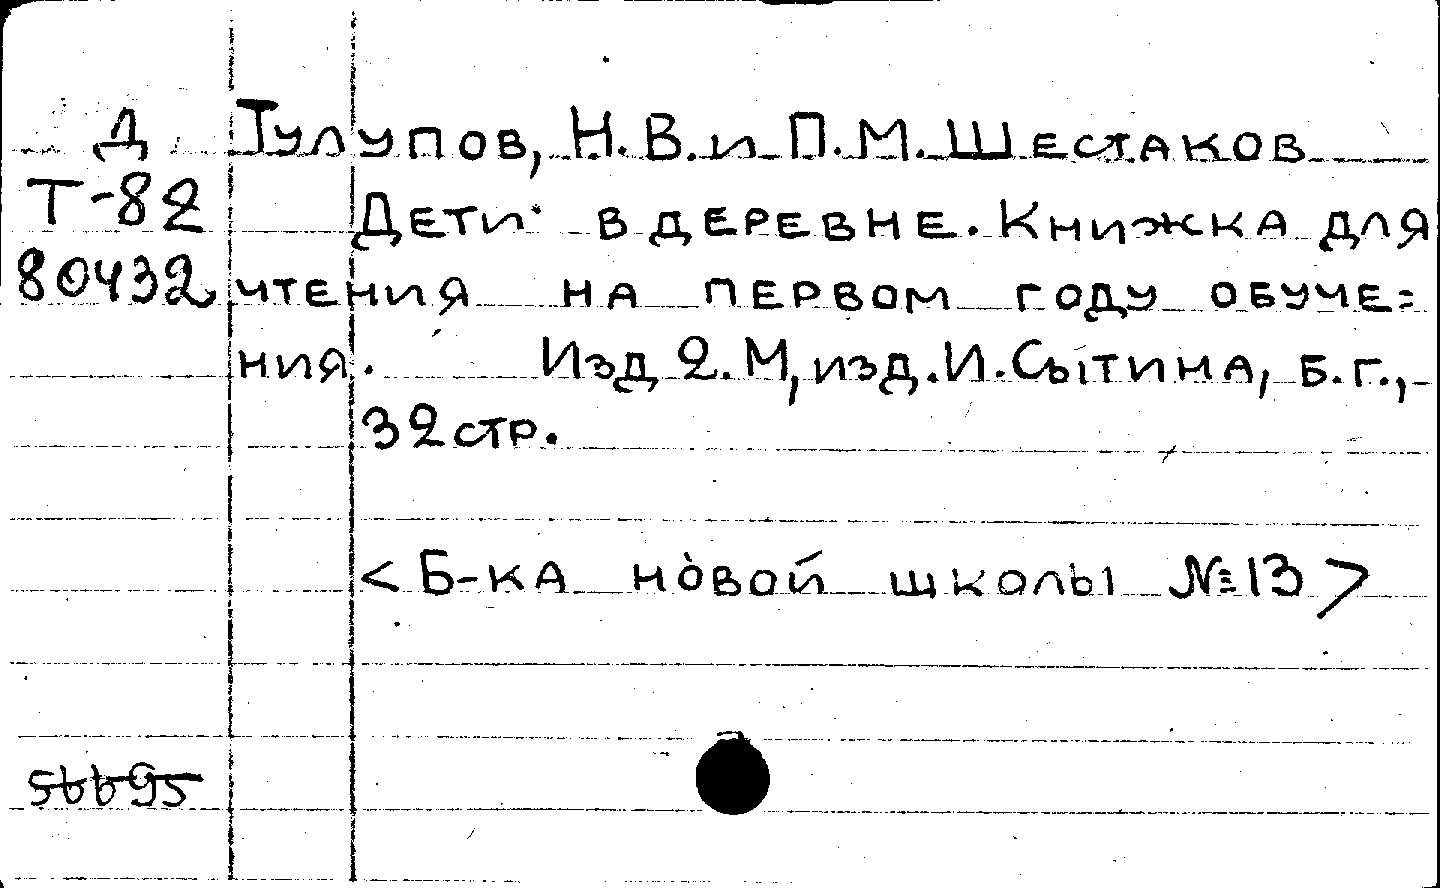 Д Тулупов, Н.В. и П.М. Шестаков
Т-82 Дети в деревне. Книжка для
80432 чтения на первом году обуче=
ния. Изд 2. М, изд. И. Сытина, б.г.,-
32 стр.
<Б-ка новой школы №13>
56695